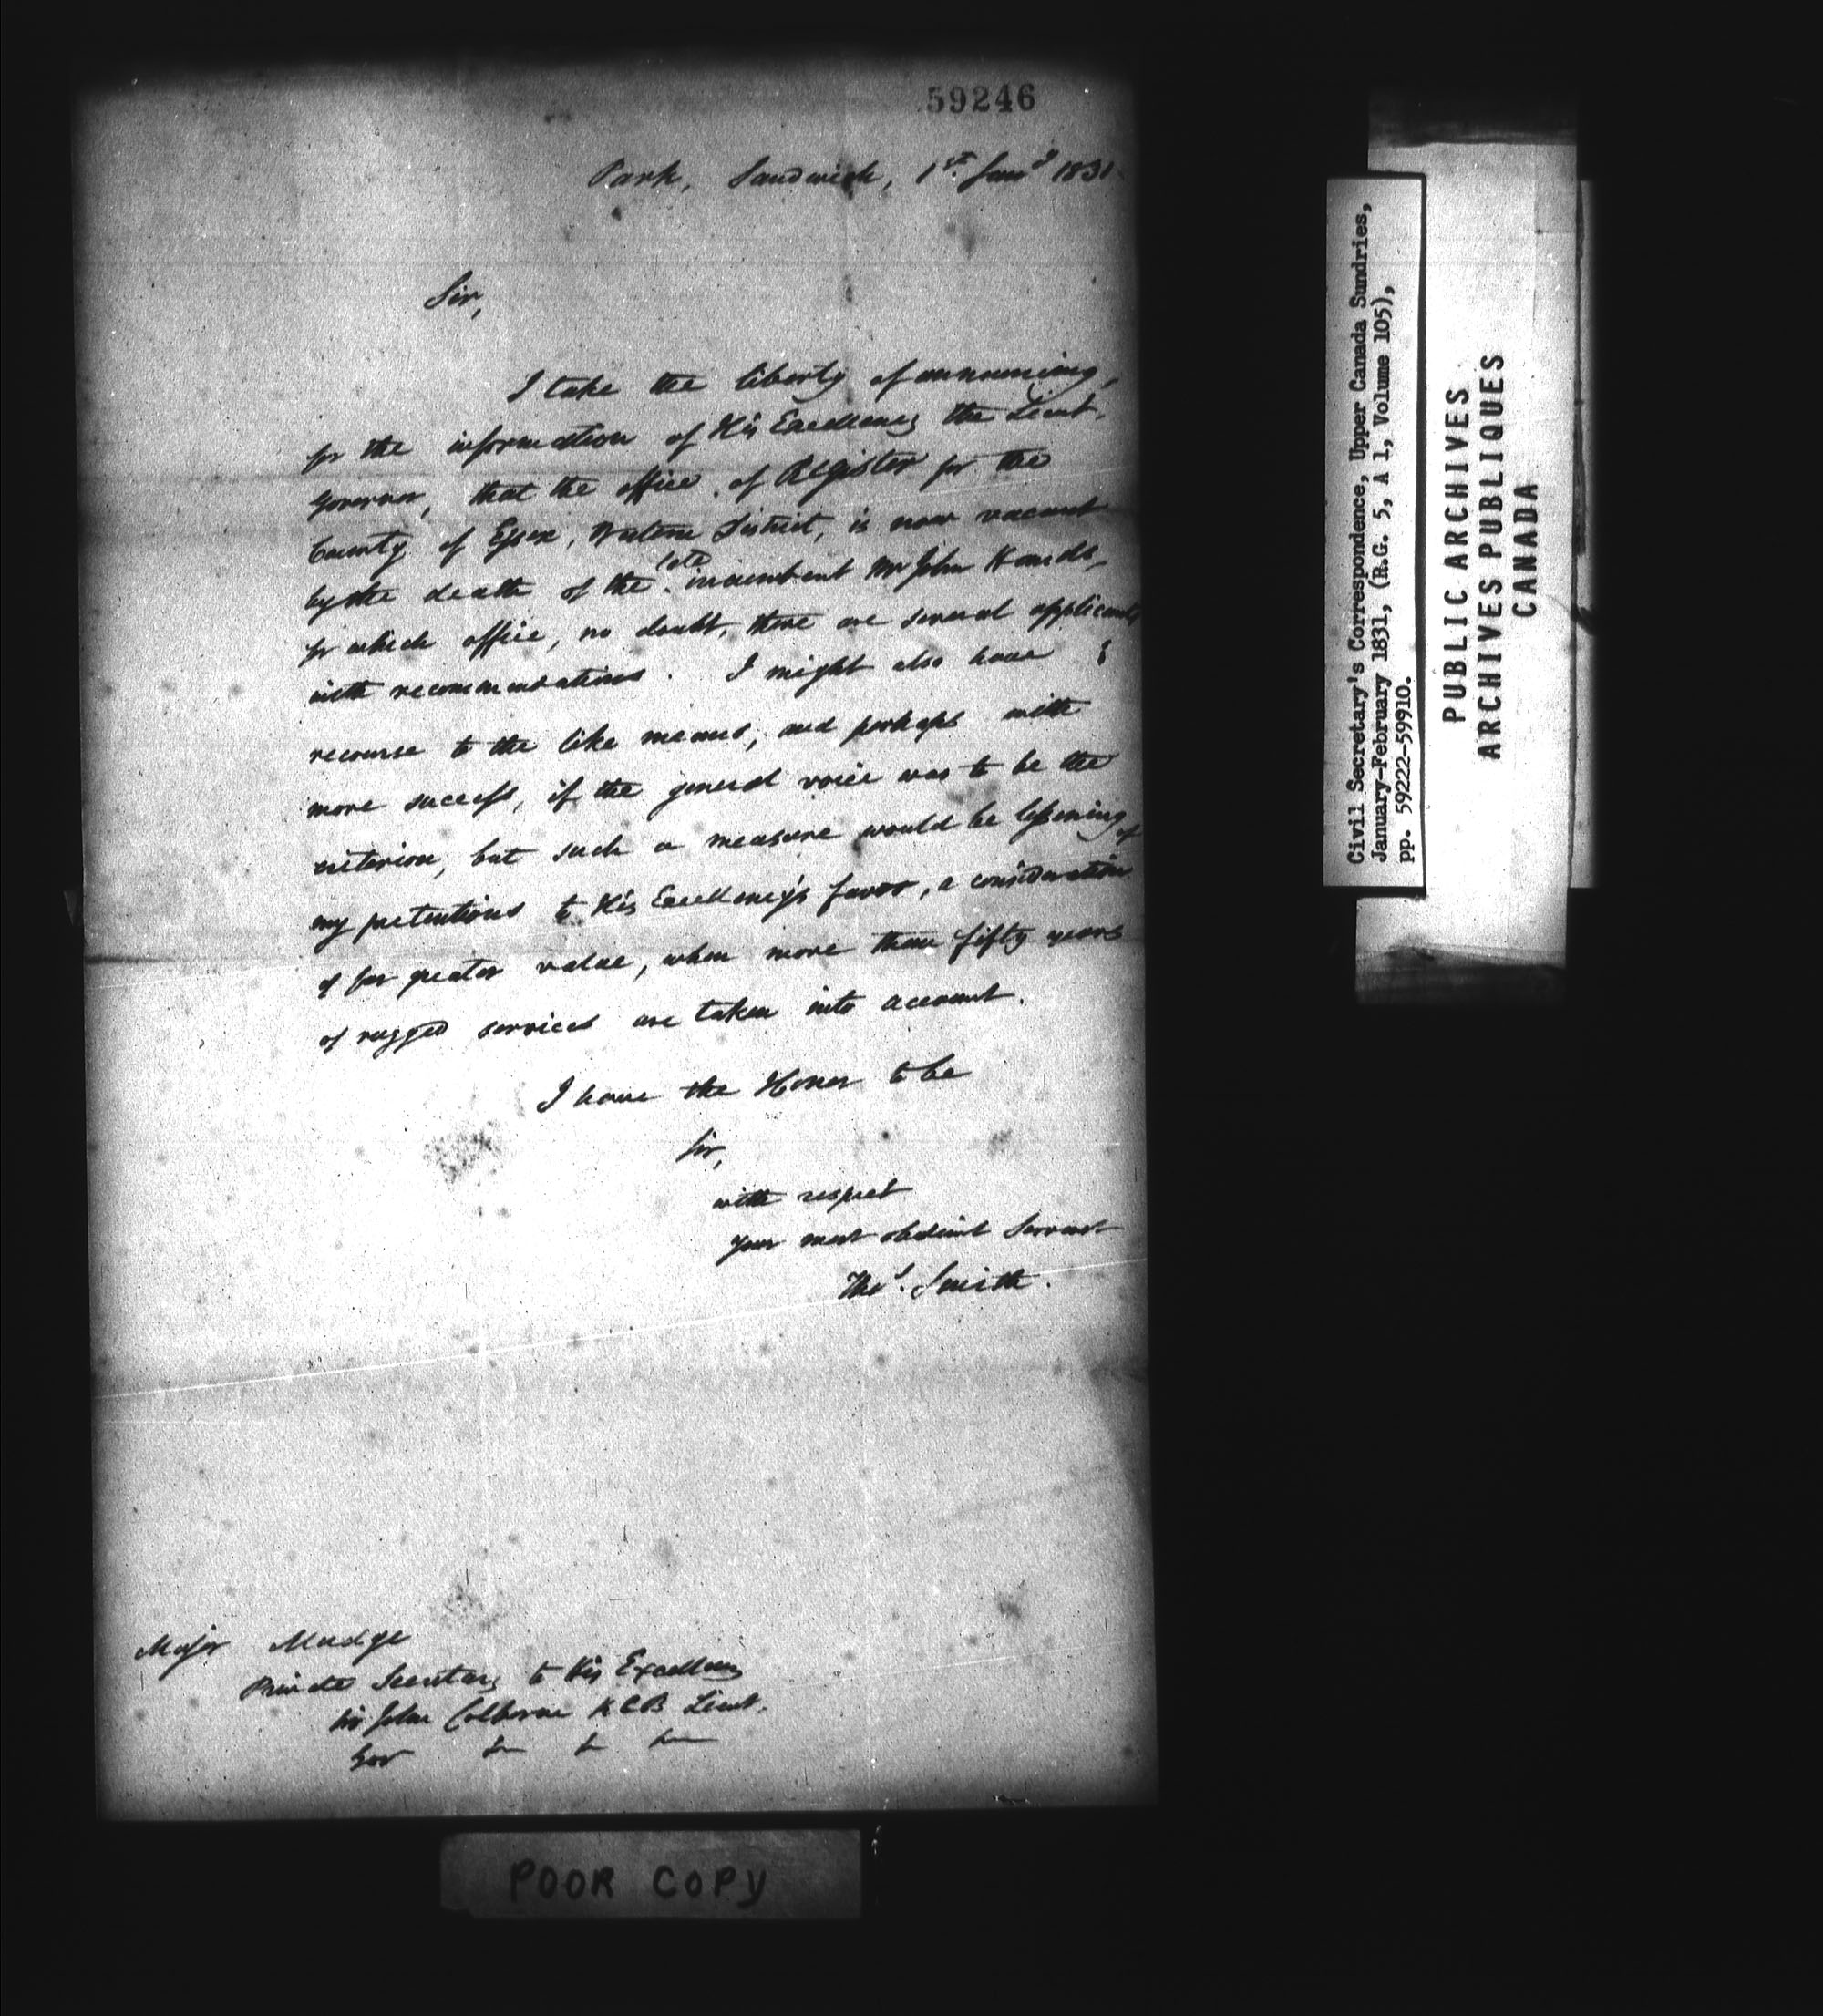 59246
Park, Sandwich, 1st Jany 1831
Sir,
I take the liberty of announcing,
for the information of His Excellency the Lieut.
Governor, that the office of Register for the
County of Essex, Western District, is now vacant
by the death of the late incumbent Mr John Hands,
for which office, no doubt, there are several applicants
with recommendations. I might also have
recourse to the like means, and perhaps with
more success, if the general voice was to be the
criterion, but such a measure would be lessening of
my pretentions to His Excellency's favor, a consideration
of far greater value, when more than fifty years
of rugged services are taken into account.
I have the Honor to be
Sir,
with respect
your most obedient Servant
Thos. Smith.
Major Mudge
Private Secretary to His Excellency
Sir John Colborne KCB Lieut.
Gov &c &c &c
POOR COPY
Civil Secretary's Correspondence, Upper Canada Sundries,
January-February 1831, (R.G. 5, A 1, Volume 105),
pp. 59222-59910.
PUBLIC ARCHIVES
ARCHIVES PUBLIQUES
CANADA